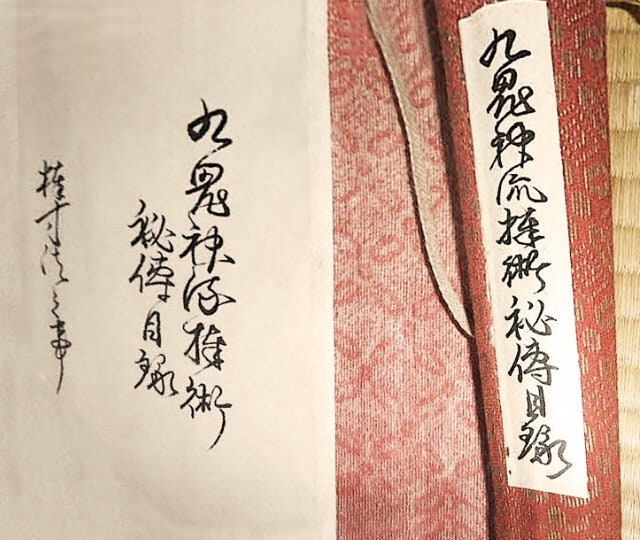 九鬼神流棒術秘傳目録
九鬼神流棒術
秘傳目録
棒寸法之事